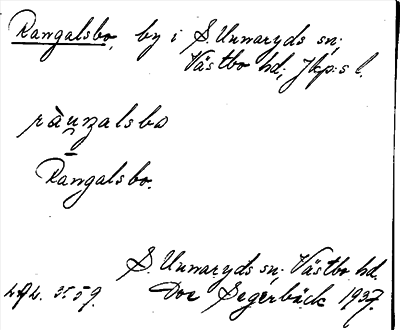 Rangalsbo, by i S. Unnaryds sn;
Västbo hd; Jkp:s l.
ràu̯nzalsbo
Rangalsbo.
S. Unnaryds sn; Västbo hd.
Segerbäck 1937.